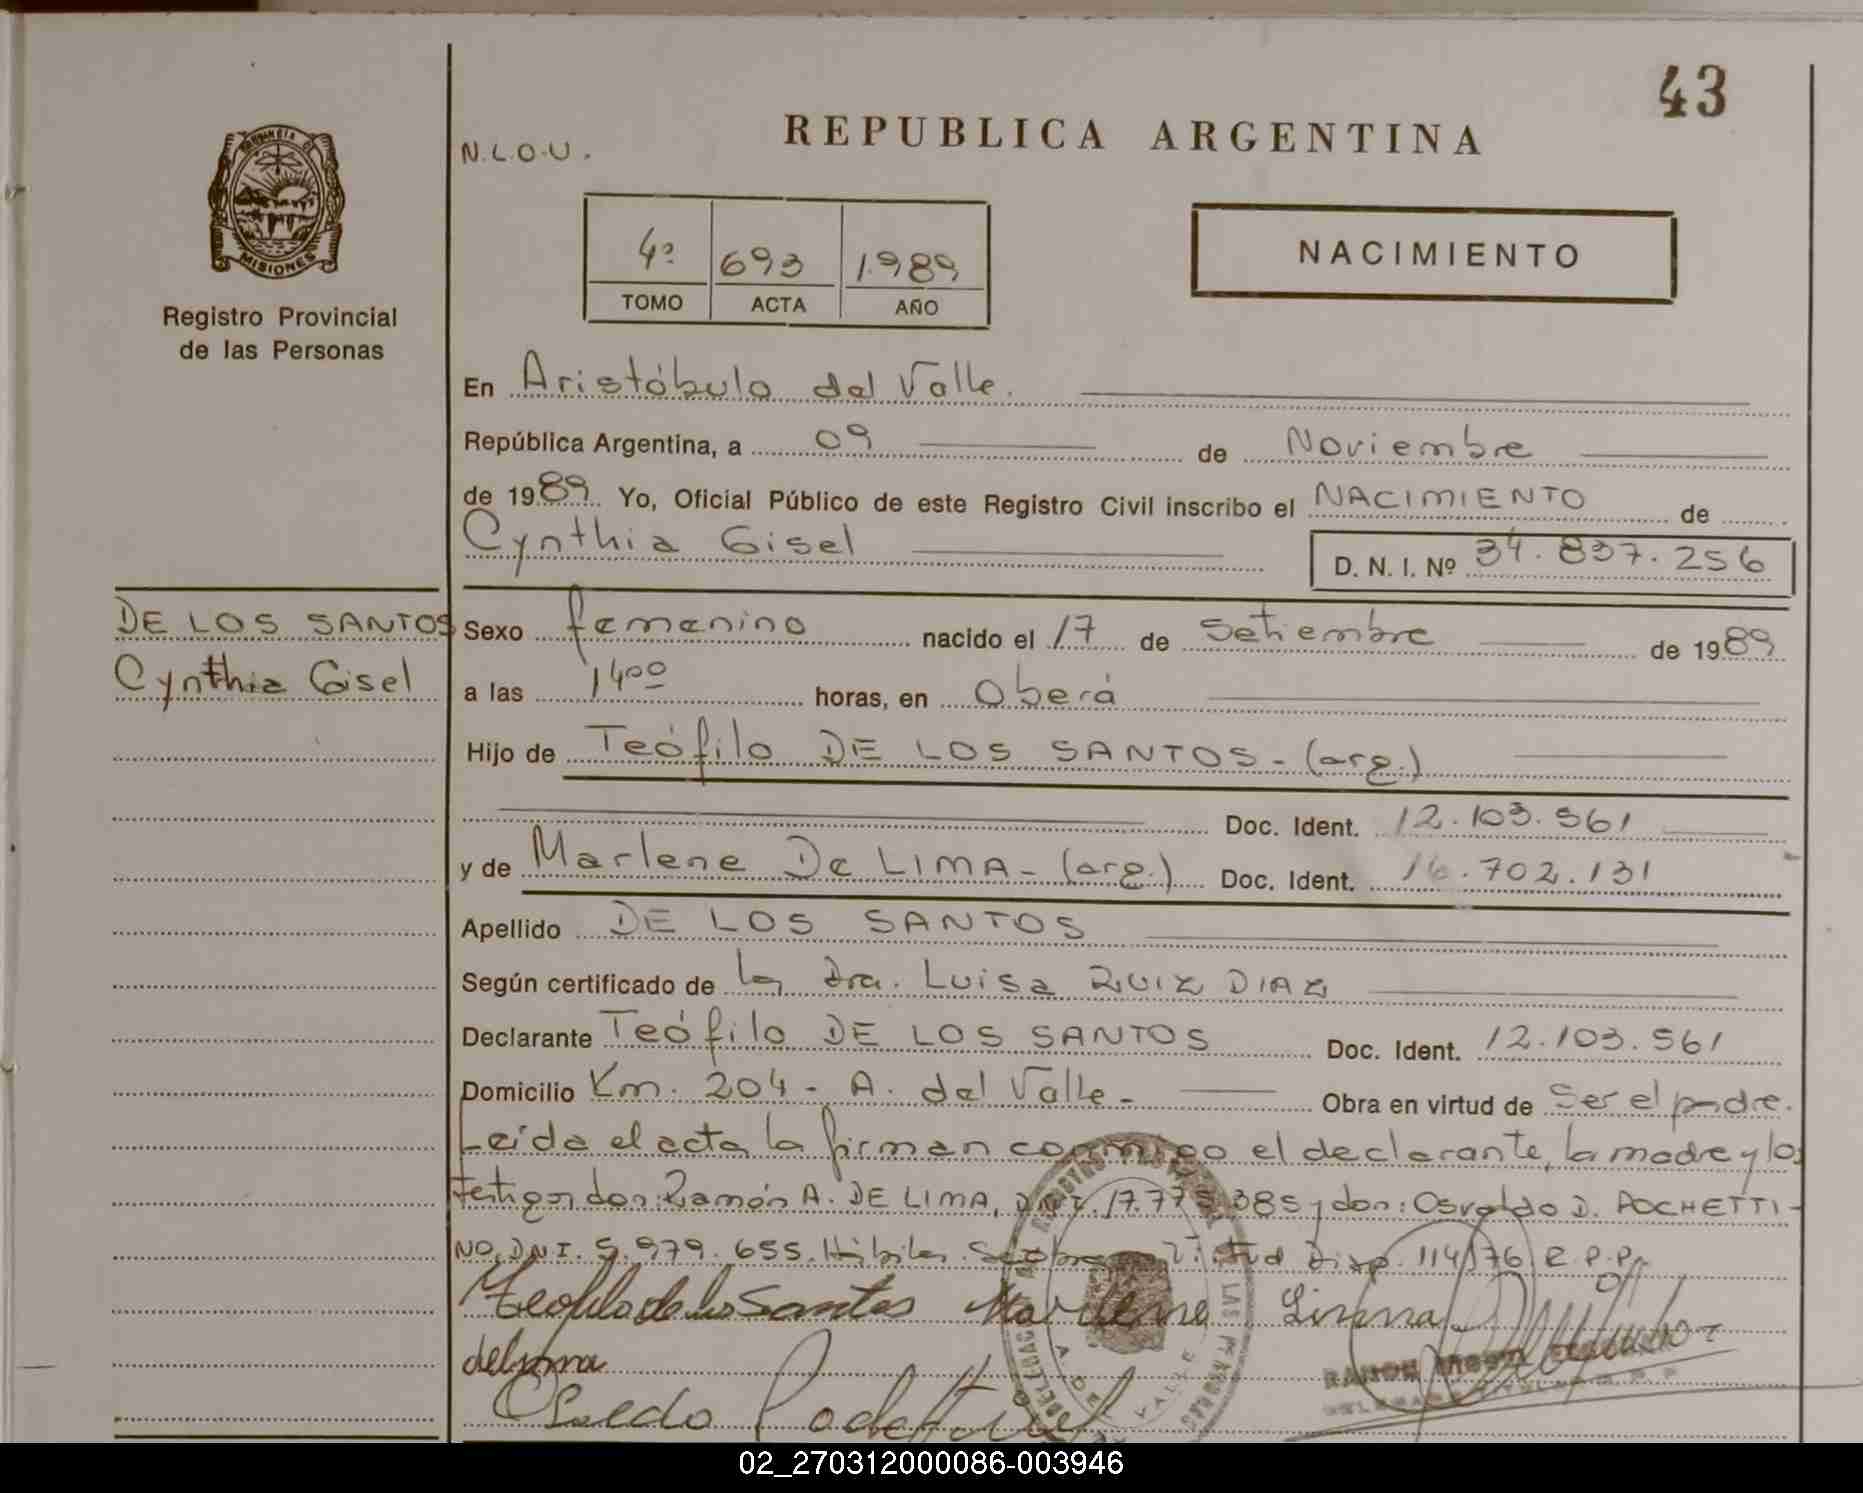 43
REPUBLICA ARGENTINA
N.L.O.U.
4º 693 1.989
TOMO ACTA AÑO
NACIMIENTO
MISIONES
Registro Provincial
de las Personas
En Aristóbulo del Valle.
República Argentina, a 09 de Noviembre
de 1989 Yo, Oficial Público de este Registro Civil inscribo el NACIMIENTO de
Cynthia Gisel D. N. I. Nº 34.837.256
DE LOS SANTOS
Cynthia Gisel
Sexo femenino nacido el 17 de Setiembre de 1989
a las 14⁰⁰ horas, en Oberá
Hijo de Teófilo DE LOS SANTOS - (arg.)
Doc. Ident. 12.103.561
y de Marlene De LIMA - (arg.) Doc. Ident. 16.702.131
Apellido DE LOS SANTOS
Según certificado de la Dra. Luisa RUIZ DIAZ
Declarante Teófilo DE LOS SANTOS Doc. Ident. 12.103.561
Domicilio Km. 204 - A. del Valle - Obra en virtud de Ser el padre.
Leída el acta la firman conmigo el declarante, la madre y los
testigos don: Ramón A. DE LIMA, D.N.I. 17.775.385 y don: Osvaldo D. POCHETTI-
NO, DNI. 5.979.655. Hábiles Disp. 114/76 R.P.P.
Teofilo de los Santos Marlene Lima
delima
02_270312000086-003946